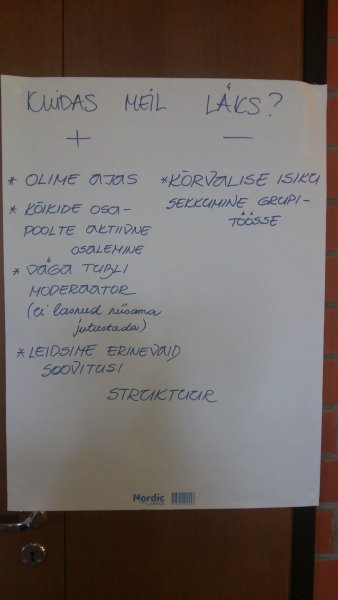 KUIDAS MEIL LÄKS?
+ —
* OLIME AJAS
* KÕIKIDE OSA-
POOLTE AKTIIVNE
OSALEMINE
* VÄGA TUBLI
MODERAATOR
(ei lasnud niisama
jutustada)
* LEIDSIME ERINEVAID
SOOVITUSI
* KÕRVALISE ISIKU
SEKKUMINE GRUPI-
TÖÖSSE
STRUKTUUR
Nordic